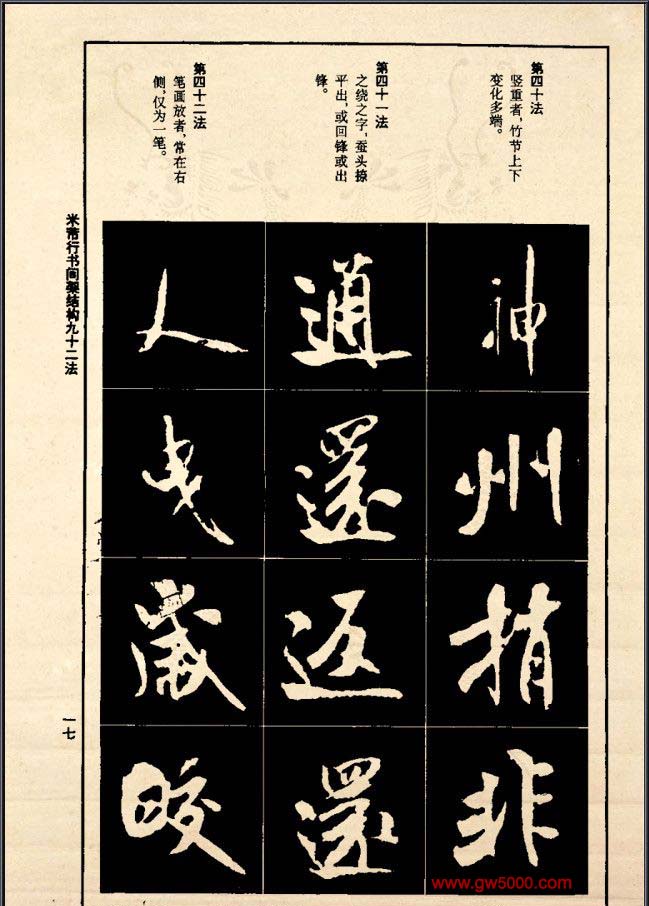 第四十法
竖重者，竹节上下
变化多端。
神
州
捎
非
第四十一法
之绕之字，蚕头撩
平出，或回锋或出
锋。
通
還
返
還
第四十二法
笔画放者，常在右
侧，仅为一笔。
人
曳
歲
皎
米芾行书间架结构九十二法
一七
www.gw5000.com